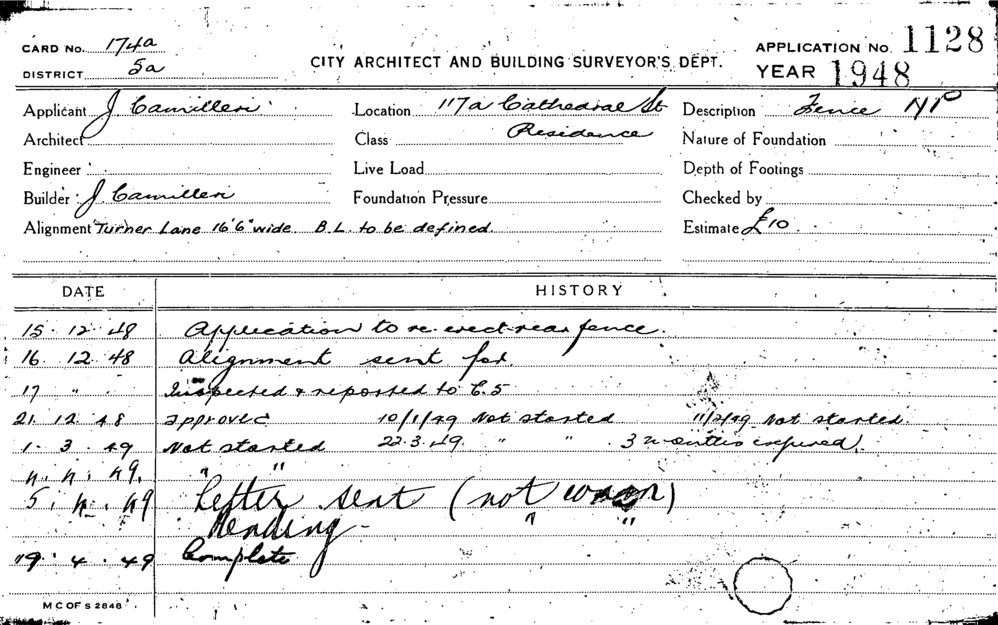 CARD No. 174a
CITY ARCHITECT AND BUILDING SURVEYOR'S DEPT.
APPLICATION No. 1128
DISTRICT 5a
YEAR 1948
Applicant J Camilleri Location 117a Cathedral St Description Fence
Architect Class Residence Nature of Foundation
Engineer Live Load Depth of Footings
Builder J Camilleri Foundation Pressure Checked by
Alignment Turner Lane 16'6" wide B.L. to be defined. Estimate £10
DATE HISTORY
15. 12. 48 Application to re-erect rear fence.
16. 12. 48 Alignment sent for.
17 " Inspected & reported to C.S
21. 12. 48 approved 10/1/49 Not started 11/2/49 Not started
1. 3. 49 Not started 22.3.49. " " 3 months expired.
4. 4. 49. " "
5. 4. 49 Letter sent (not
Pending - " "
19. 4. 49 Complete
M C OF S 2848